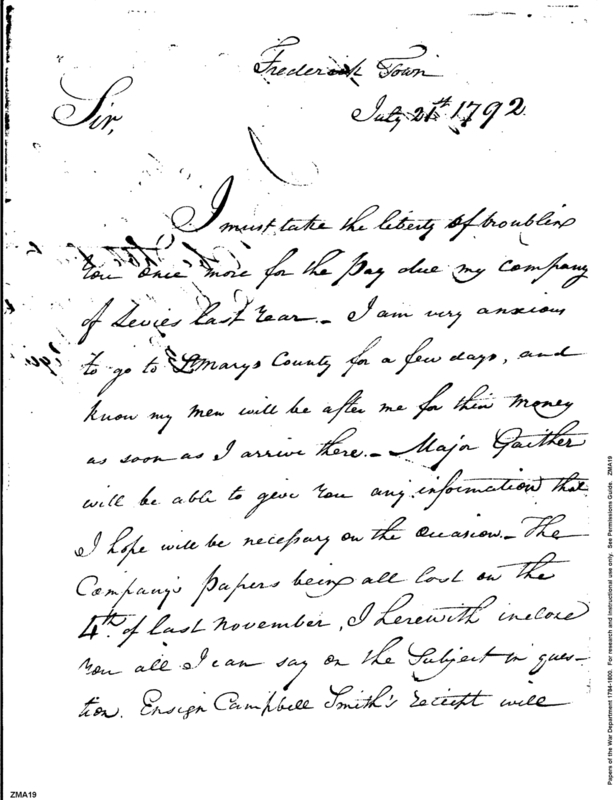 Frederick Town
July 21st 1792
Sir,
I must take the liberty of troubling
You once more for the Pay due my company
of Levies last Year. – I am very anxious
to go to St Marys County for a few days, and
know my men will be after me for their money
as soon as I arrive there. – Major Gaither
will be able to give You any information that
I hope will be necessary on the Occasion. – The
Company's Papers being all lost on the
4th. of last November, I herewith inclose
You all I can say on the Subject in ques-
tion. Ensign Campbell Smith's receipt will
Papers of the War Department 1784-1800. For research and instructional use only. See Permissions Guide. ZMA19
ZMA19